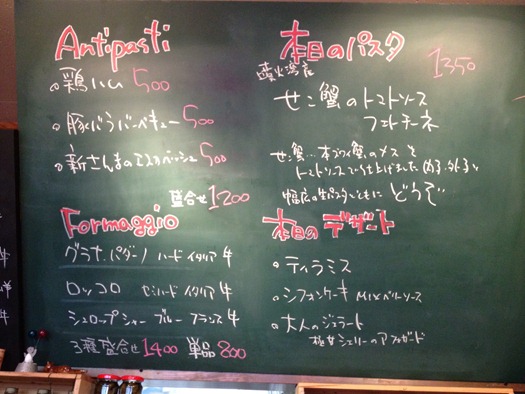 Antipasti
鶏ハム 500
豚バラバーベキュー 500
新さんまのエスカベッシュ 500
盛合せ 1200
Formaggio
グラナ・パダーノ ハード イタリア 牛
ロッコロ セミハード イタリア 牛
シュロップシャー ブルー フランス 牛
3種盛合せ 1400 単品 800
本日のパスタ
1350
せこ蟹のトマトソース
フェトチーネ
せこ蟹…本ズワイ蟹のメスを
トマトソースで仕上げました
幅広の生パスタとともに どうぞ
本日の デザート
ティラミス
シフォンケーキ MIXベリーソース
大人のジェラート
極甘シェリーのアフォガード